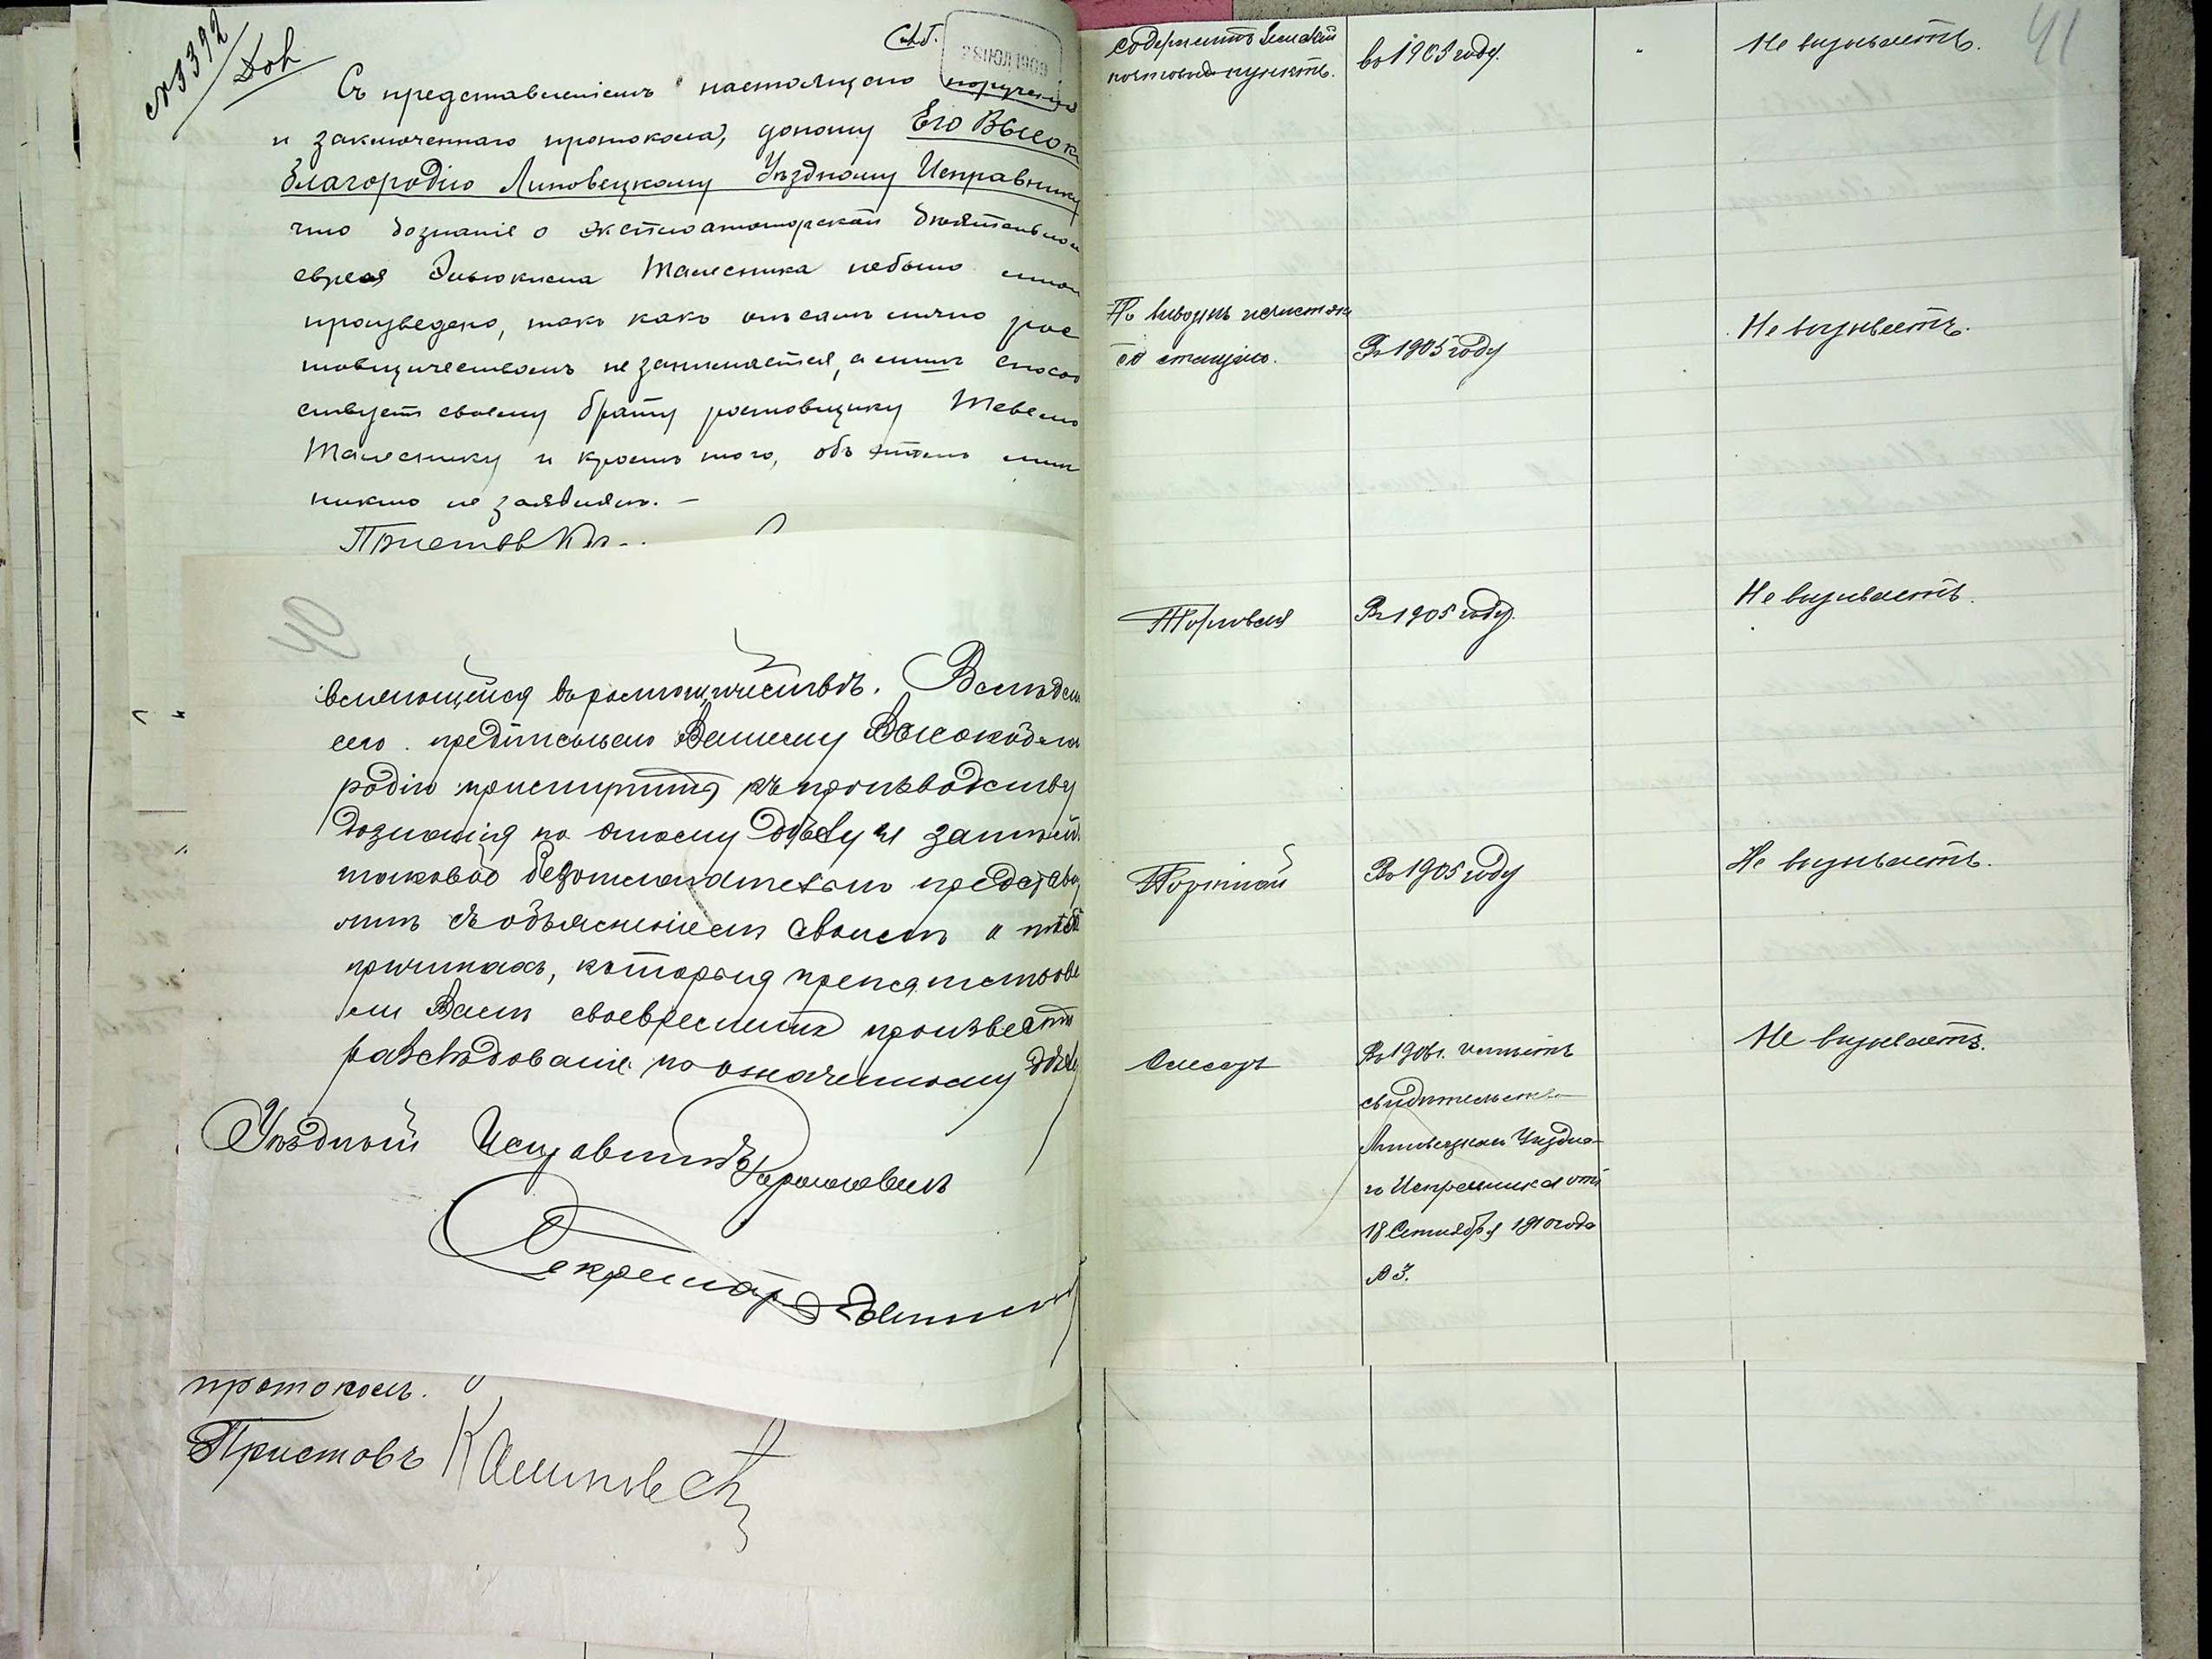 № 3392
28 ИЮЛ 1909
Съ представленіемъ настоящаго порученія
и заключеннаго протокола, доношу Его Высоко
благородію Липовецкому Уѣздному Исправнику
что дознаніе о эксплоататорской дѣятельнос
еврея Эльюкима Талесника небыло мною
произведено, такъ какъ онъ самъ лично рос
товщичествомъ не занимается, а лишь способ
ствуетъ своему брату ростовщику Тевелю
Талеснику и кромѣ того, объ этомъ мнѣ
никто не заявлялъ. —
Приставъ
въ ростовщичествѣ. Вслѣдст
сего предписываю Вашему Высокобла
родію приступить къ производству
дознанія по этому дѣлу и затѣмъ
таковое безотлагательно представ
лить съ объясненіемъ своимъ о тѣхъ
причинахъ, которыя препятствова
ли Вамъ своевременно произвести
разслѣдованіе по означенному дѣлу
Уѣздный Исправникъ
Секретарь
протоколъ.
Приставъ
41
содержитъ Земскій
почтовый пунктъ.
во 1905 году.
Не вызываетъ.
со станціи.
Въ 1905 году
Не вызываетъ.
Торговля
Въ 1905 году.
Не вызываетъ.
Портной
Въ 1905 году
Не вызываетъ.
Слесарь
Въ 1906 г. имѣетъ
свидѣтельство
Липовецкаго Уѣздна-
го Исправника отъ
18 Сентября 1910 года
№ 3.
Не вызываетъ.